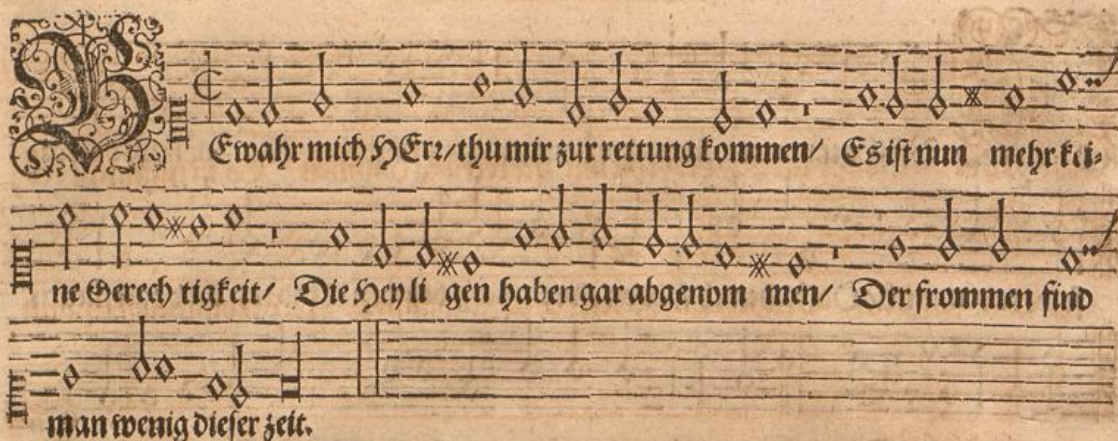 BEwahr mich HErr/thu mir zur rettung kommen/ Es ist nun mehr kei-
ne Gerech tigkeit/ Die Hey li gen haben gar abgenom men/ Der frommen find
man wenig dieser zeit.